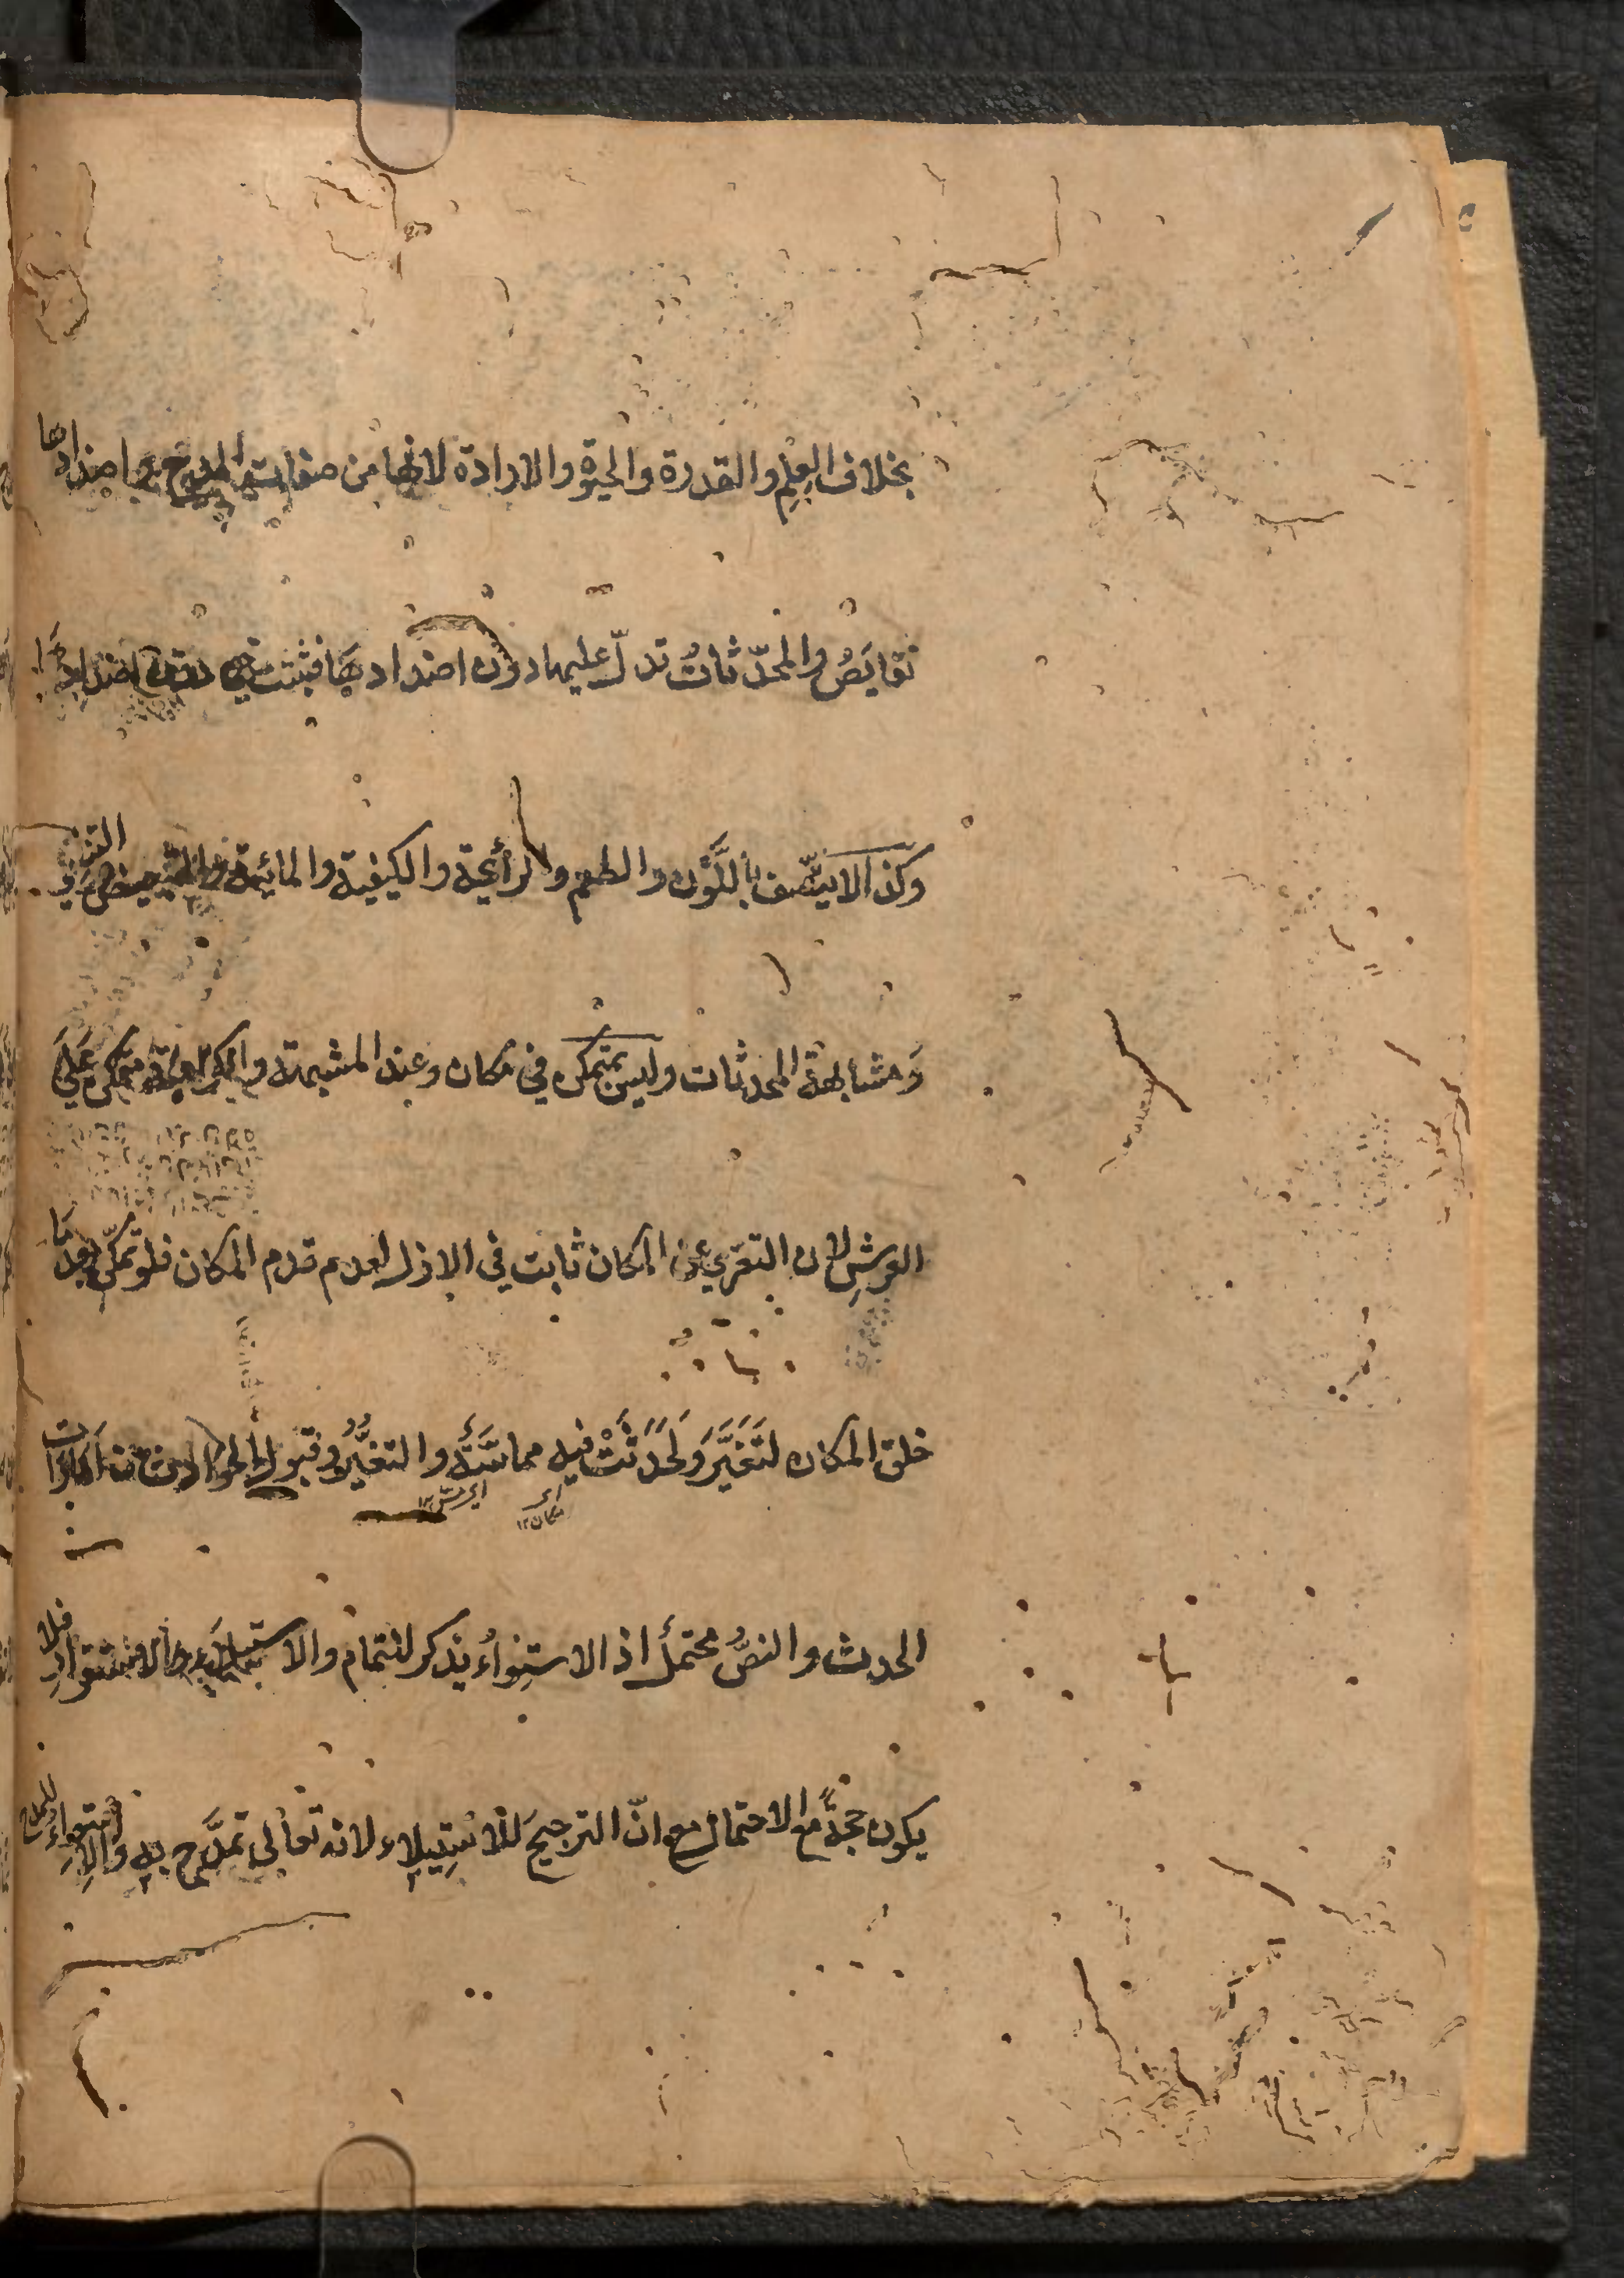 بخلاف العلم والقدرة والحيوة والارادة لانها من صفات المدح واضدادها
نقايص والمحدثات تدل عليها دون اضدادها فيثبت هي دون اضدادها
وكذا لا يتصف باللون والطعم والرائحة والكيفية والمائية
ومشابهة المحدثات وليس بمتمكن في مكان وعند المشبهة والكرامية متمكن على
العرش لان التعري عن المكان ثابت في الازل لعدم قدم المكان فلو تمكن بعد ما
خلق المكان لتغير ولحدثت فيه مماسة والتغير وقبول الحوادث من امارات
اى مكان ١٢ اى عرش ١٢
الحدث والنص محتمل اذ الاستواء يذكر لتمام والاستيلاء والاستقرار فلا
يكون حجة مع الاحتمال مع ان الترجيح للاستيلاء لانه تعالى تمدح به والاستواء للمدح